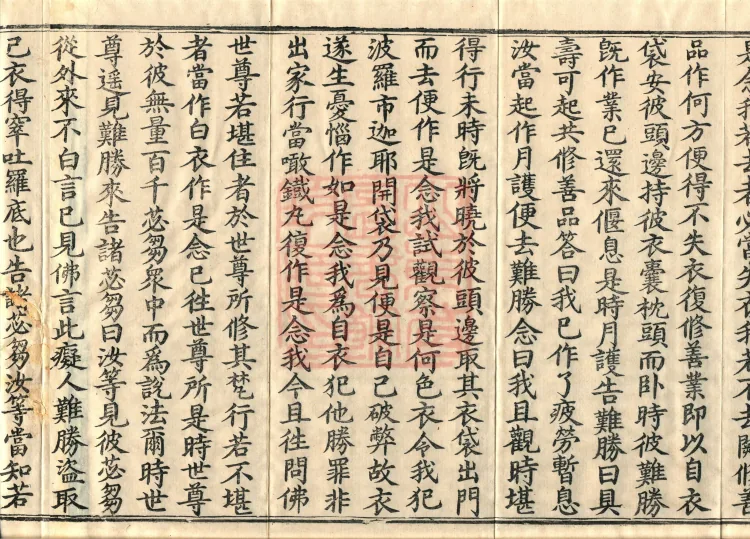 是念我若去者必當失衣我若不去闕修善
品作何方便得不失衣復修善業即以自衣
袋安彼頭邊持彼衣囊枕頭而卧時彼難勝
旣作業已還來偃息是時月護告難勝曰具
壽可起共修善品荅曰我已作了疲勞暫息
汝當起作月護便去難勝念曰我且觀時堪
得行未時旣將曉於彼頭邊取其衣袋出門
而去便作是念我試觀察是何色衣令我犯
波羅市迦耶開袋乃見便是自己破弊故衣
遂生憂惱作如是念我爲自衣犯他勝罪非
出家行當噉鐵丸復作是念我今且往問佛
世尊若堪住者於世尊所修其梵行若不堪
者當作白衣作是念已往世尊所是時世尊
於彼無量百千苾芻衆中而爲說法爾時世
尊遥見難勝來告諸苾芻曰汝等見彼苾芻
從外來不白言已見佛言此癡人難勝盜取
己衣得窣吐羅底也告諸苾芻汝等當知若